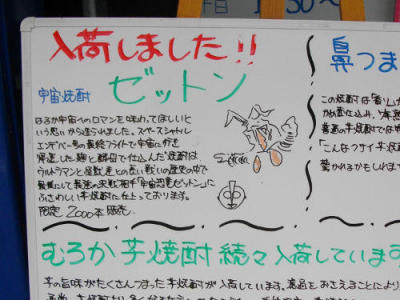 入荷しました!!
宇宙焼酎 ゼットン
はるか宇宙へのロマンを味わってほしいと
いう思いから造られました。スペースシャトル
エンデバー号の最終フライトで宇宙に行き
帰還した麹と酵母で仕込んだ焼酎は、
ウルトラマンと怪獣達との長い戦いの歴史の中で
最強の
「宇宙恐竜ゼットン」に
ふさわしい芋焼酎に仕上っております。
限定2000本販売。
鼻つま
この焼酎は「香り
かめ壺仕込み、
普通の芋焼酎では
「こんなクサイ芋焼
驚かれるかもしれま
むろか芋焼酎続々入荷しています
芋の旨味がたくさんつまった芋焼酎が入荷しています。高温をおさえることにより